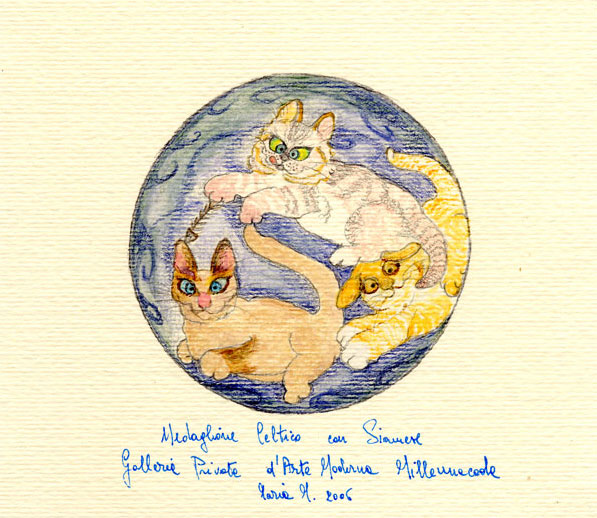 Medaglione Celtico con Siamese
Galleria Privata d'Arte Moderna Millennacode
Ilaria M. 2006